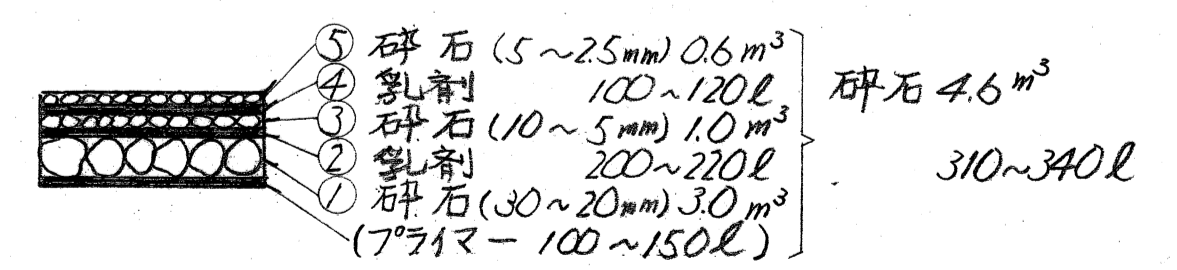 ⑤ 砕石(5~2.5mm) 0.6m³
④ 乳剤 100~120ℓ
③ 砕石(10~5mm) 1.0m³
② 乳剤 200~220ℓ
① 砕石(30~20mm) 3.0m³
(プライマー 100~150ℓ)
砕石 4.6m³
310~340ℓ